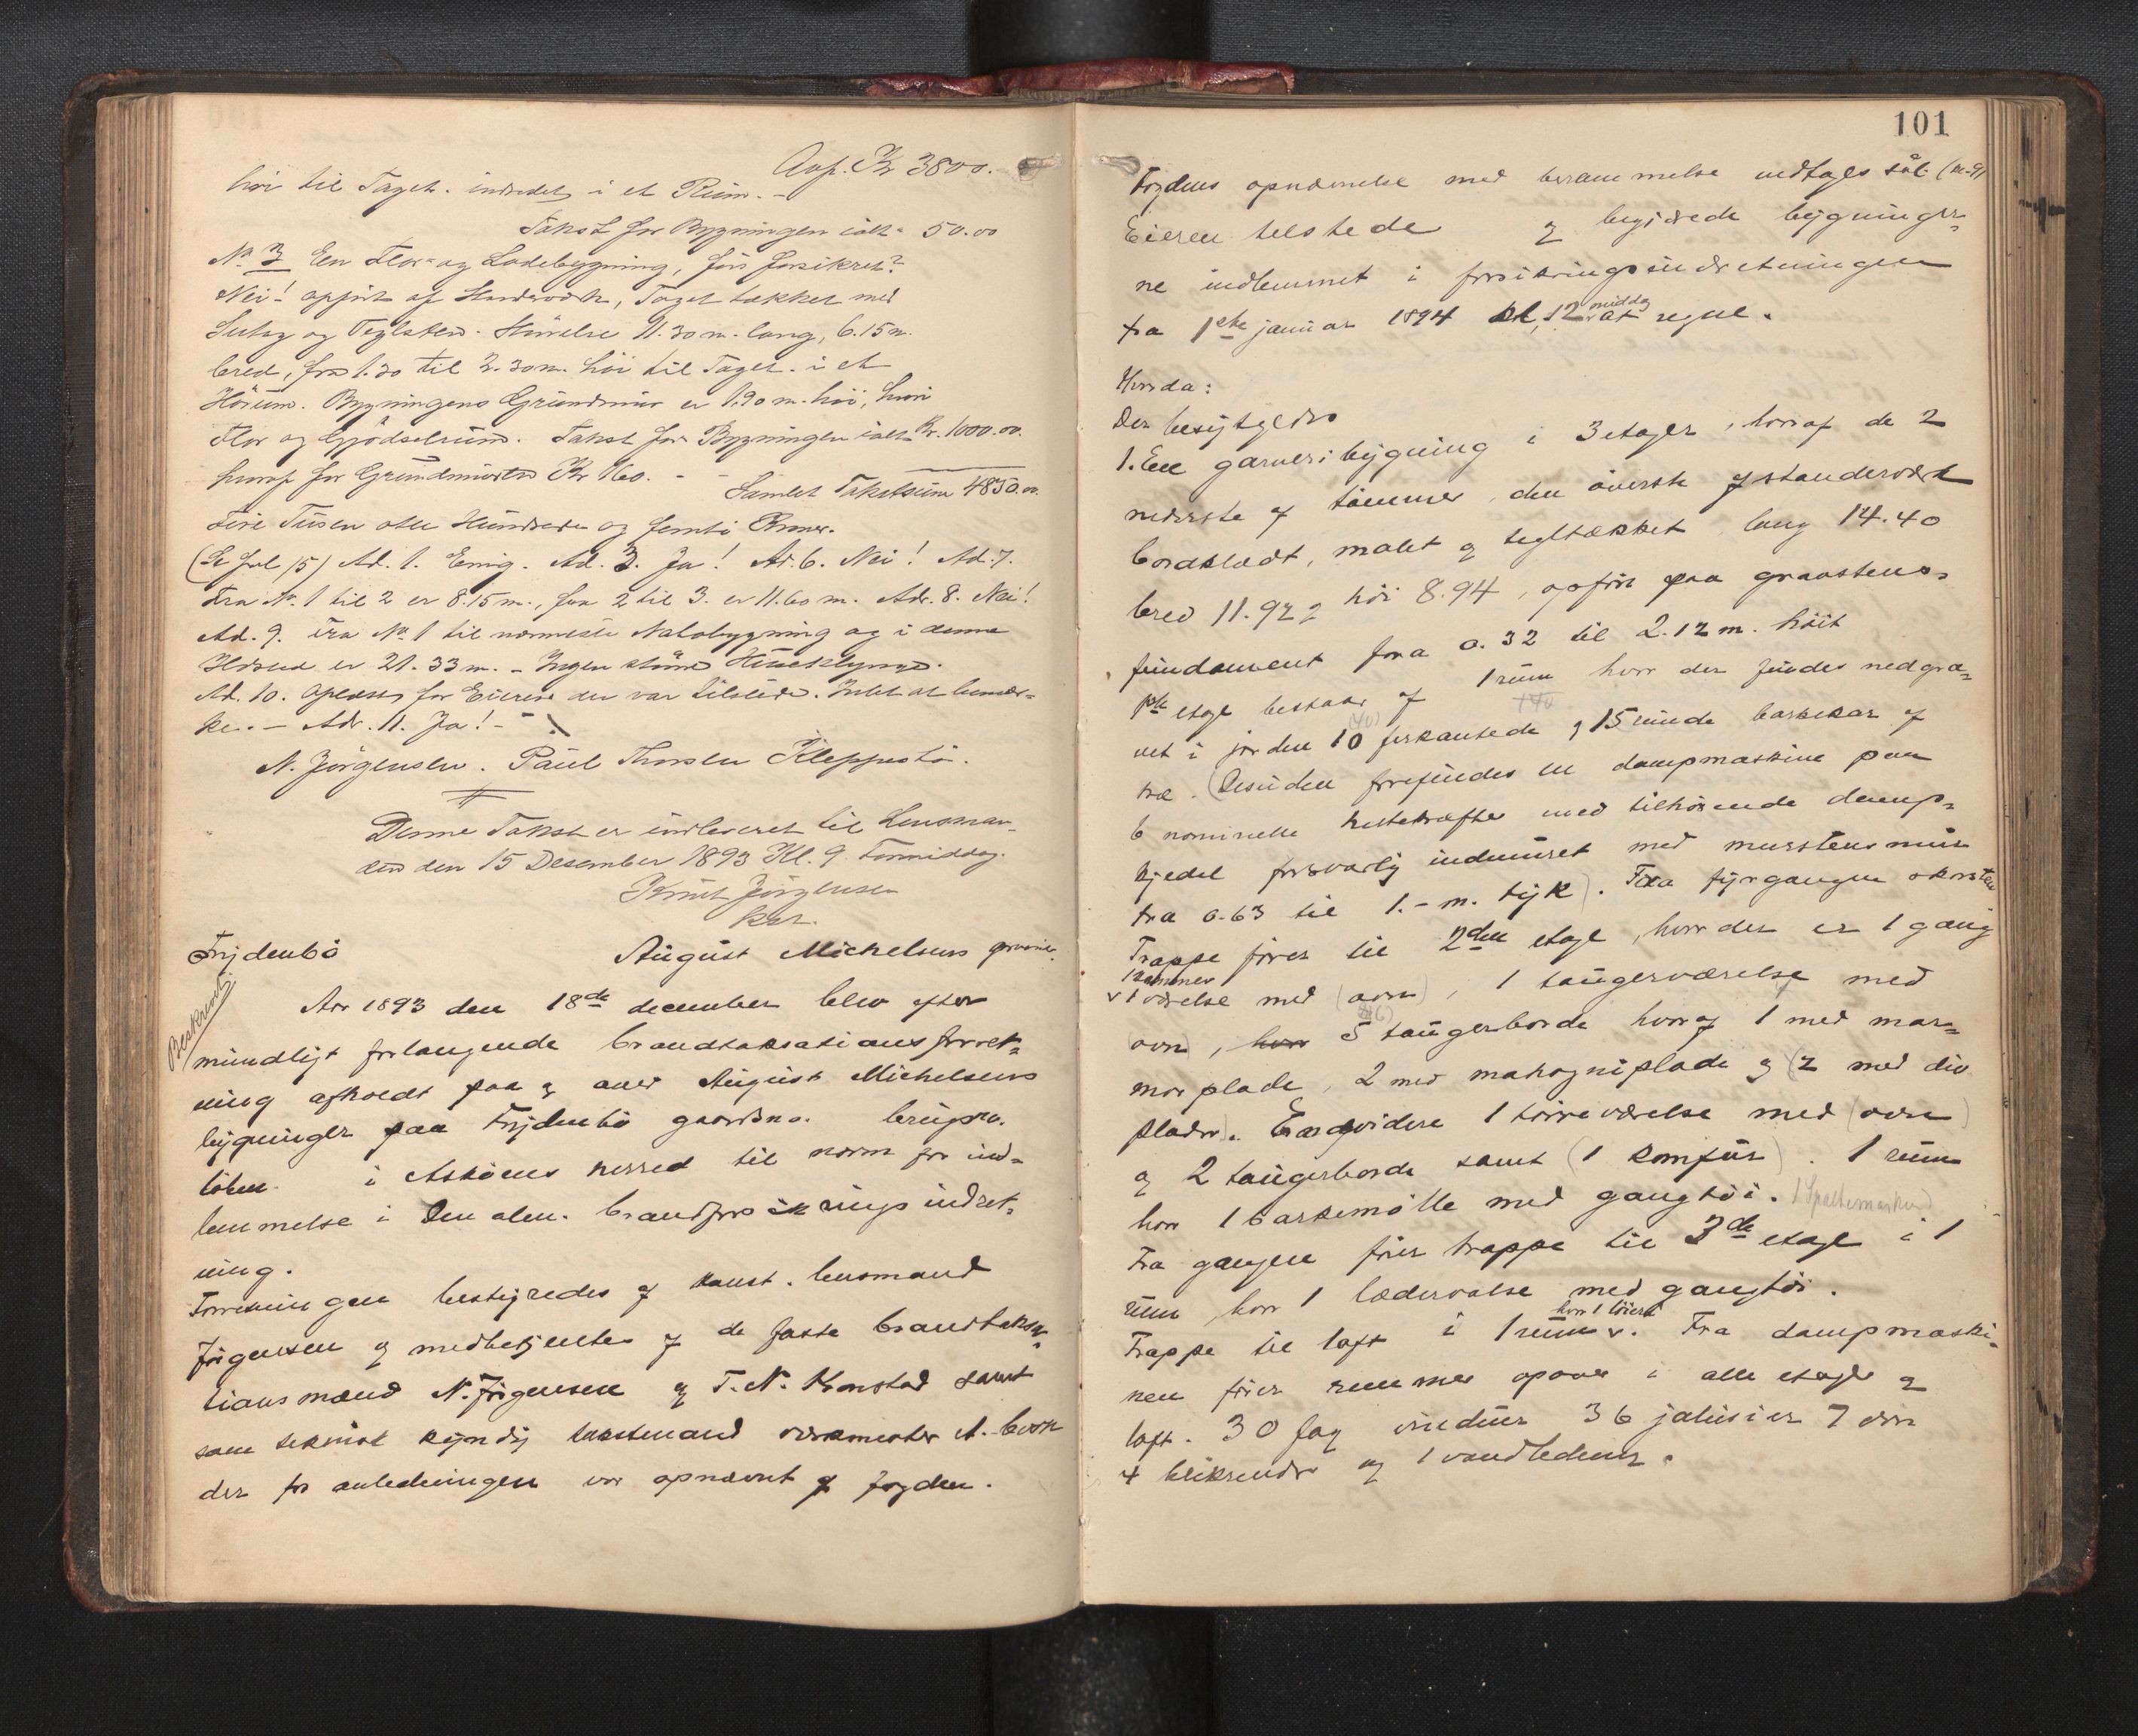 Ovf. Kr 3800.
høi til Taget. indredet i et Rum. -
Takst for Bygningen ialt - 50.00
No 3 En Flor- og Ladebygning, før forsikret?
Nei! opført af Stenderværk, Taget tækket med
Sutag og Teglsten. Størrelse 11.30 m. lang, 6.15 m.
bred, fra 1.30 til 2.30 m. høi til Taget. i et
Hörum. Bygningens Grundmur er 1.90 m. høi, hvori
Flor og Gjödselrum. Takst for Bygningen ialt Kr. 1000.00.
hvoraf for Grundmuren Kr 160. - - Samlet Takstsum 4850.00.
Fire Tusen otte Hundrede og femti Kroner.
(Se fol 15) Ad. 1. Enig. Ad. 3. Ja! Ad. 6. Nei! Ad. 7.
Fra No. 1 til 2 er 8.15 m., fra 2 til 3. er 11.60 m. Ad. 8. Nei!
Ad. 9. Fra No 1 til nærmeste Nabobygning og i denne
Ildsted er 21.33 m. - Ingen större Husklynge.
Ad. 10. Oplæst for Eieren der var tilstede. Intet at bemær-
ke. - Ad. 11. Ja! -
N. Jörgensen. Paul Thorsen Kleppestö.
Denne Takst er indleveret til Lensman-
den den 15 Desember 1893 Kl. 9 Formiddag.
Knut Jörgensen
Kst.
Frydenbö August Michelsens garveri.
Beskrevet
Aar 1893 den 18de december blev efter
mundligt forlangende brandtaksationsforret-
ning afholdt paa og over August Michelsens
bygninger paa Frydenbö gaardsno. brugsno.
löbeno. i Askøens herred til norm for ind-
lemmelse i Den alm. brandforsikringsindret-
ning.
Forretningen bestyredes af konst. lensmand
Jörgensen og medbetjentes af de faste brandtaksa-
tionsmænd N. Jörgensen og T. N. Kronstad samt
som teknisk kyndig takstmand værkmester A.
der for anledningen var opnævnt af fogden.
101
Fogdens opnævnelse med berammelse vedtages sål.
Eieren tilstede og begjærede bygninger-
ne indlemmet i forsikringsindretningen
fra 1ste januar 1894 kl. 12 middag at regne.
Hvorda:
Der besigtgedes
1. En garveribygning i 3 etager, hvoraf de 2
nederste af tømmer, den øverste af standerværk
bordklædt, malet og tegltækket, lang 14.40
bred 11.92 og høi 8.94, opført paa graastens-
fundament fra 0.32 til 2.12 m. høit
1ste etage bestaar af 1 rum hvor der findes nedgra-
vet i jorden 10 firkantede og 15 runde barkekar af
træ. (Desuden forefindes en dampmaskine paa
6 nominelle hestekræfter med tilhørende damp-
kjedel forsvarlig indmuret med murstensmur
fra 0.63 til 1.- m. tyk). Fra fyrgangen
Trappe fører til 2den etage, hvor der er 1 gang
1 kammer
v 1 værelse med (ovn), 1 taugerværelse med
ovn), hvor 5 taugerborde hvoraf 1 med mar-
morplade, 2 med mahogniplade og (2 med div
plader). Endvidere 1 tørreværelse med (ovn)
og 2 taugerborde samt (1 komfür). 1 rum
hvor 1 barkemölle med gangtöi. 1 Spaltemaskine
Fra gangen förer trappe til 3de etage i 1
rum, hvor 1 lædervalse med gangtöi.
Trappe til loft i 1 rum v. Fra dampmaski-
nen förer remmer opover i alle etager og
loft. 30 fag vinduer 36 jalusier 7 døre
4 blikrender og 1 vandledning.